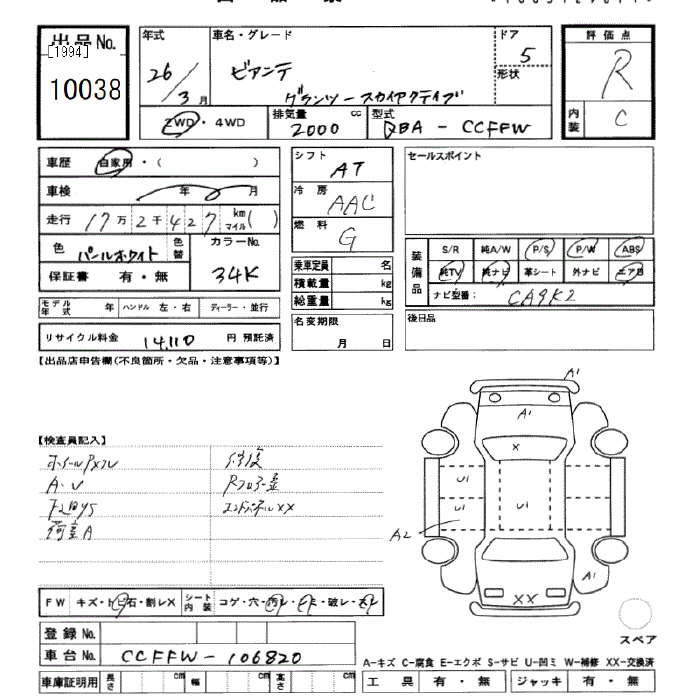 出品No.
[1994]
10038
年式 26/3月
車名・グレード
ビアンテ
グランツースカイアクティブ
ドア 5
形状
評価点
R
内装 C
2WD・4WD
排気量 2000 cc
型式 DBA - CCFFW
車歴 自家用・( )
車検 年 月
走行 17万2千427 km マイル( )
色 パールホワイト 色替
カラーNo. 34K
保証書 有・無
モデル年式 年 ハンドル 左・右 ディーラー・並行
リサイクル料金 14,110 円 預託済
シフト AT
冷房 AAC
燃料 G
乗車定員 名
積載量 kg
総重量 kg
名変期限
月 日
セールスポイント
装備品
S/R 純A/W P/S P/W ABS
純TV 純ナビ 革シート 外ナビ エアB
ナビ型番: CA9K2
後日品
【出品店申告欄(不良箇所・欠品・注意事項等)】
【検査員記入】
A・U
荷室A
修復
エンドパネルXX
A1
A1
X
U1
U1
U1
A2
A1
XX
スペア
FW キズ・トビ石・割レX シート内装 コゲ・穴・汚レ・ハ・破レ・スレ
登録No.
車台No. CCFFW-106820
車庫証明用 長さ cm 幅 cm 高さ cm
A-キズ C-腐食 E-エクボ S-サビ U-凹ミ W-補修 XX-交換済
工具 有・無 ジャッキ 有・無